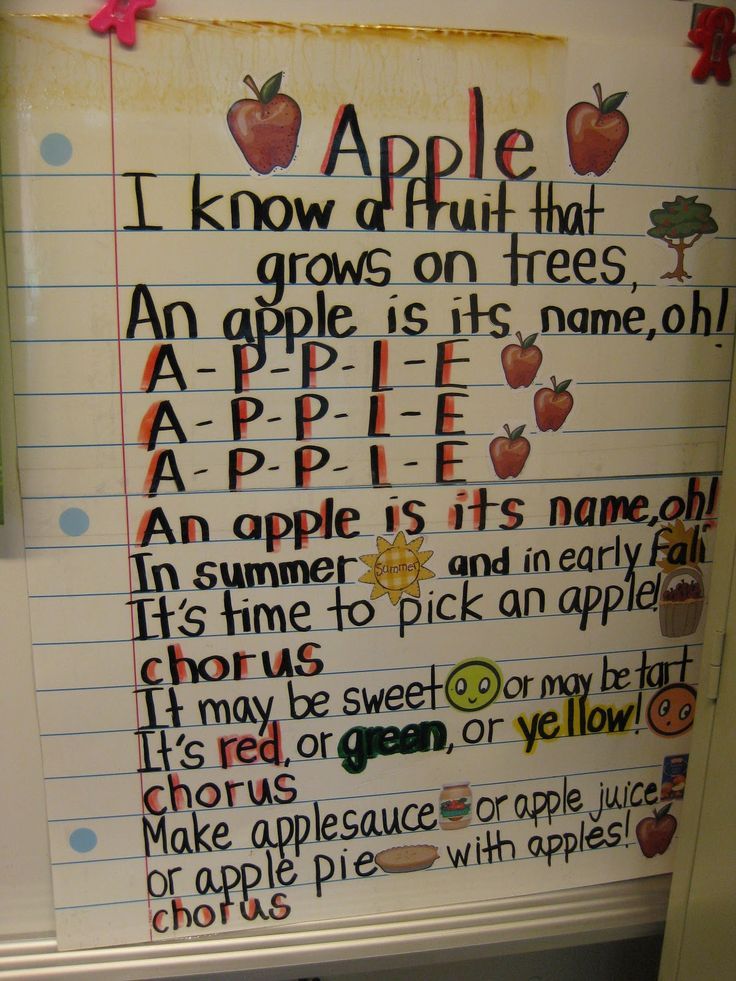 Apple
I know a fruit that
grows on trees,
An apple is its name, oh!
A-P-P-L-E
A-P-P-L-E
A-P-P-L-E
An apple is its name, oh!
In summer Summer and in early Fall
It's time to pick an apple!
chorus
It may be sweet or may be tart
It's red, or green, or yellow!
chorus
Make applesauce or apple juice
or apple pie with apples!
chorus